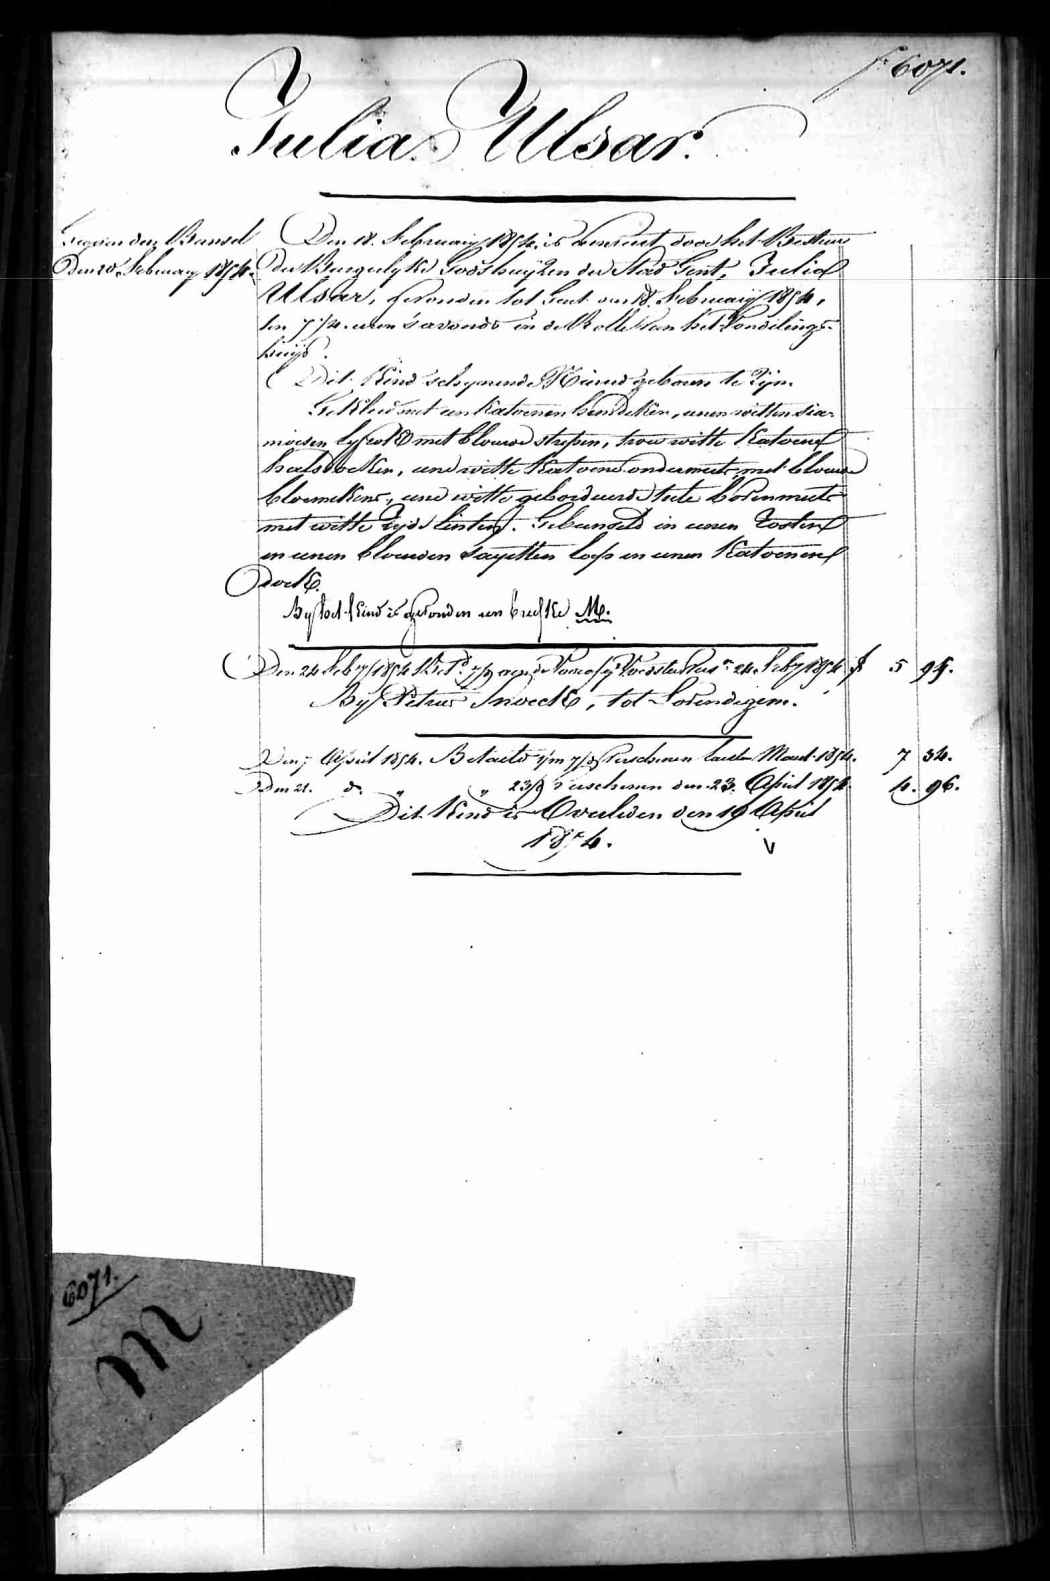 f° 6071.
Julia Ulsar.
den Bundel
Den 20 February 1854.
Den 18. February 1854. is besteed door het Bestuur
der Burgerlyke Godshuyzen der Stad Gent, Julia
Ulsar, gevonden tot Gent den 18. February 1854,
ten 7 1/2 uren 's avonds in de Rolle van het Vondelings-
huys.
Dit Kind schynende Nieuw geboren te zyn.
Gekleed met een Katoenen hemdeken, eenen witten sia-
moisen lyfrok met blouwe strepen, twee witte Katoene
halsdoeken, eene witte Katoene ondermuts met blouwe
bloemekens, eene witte geborduerde tule bovenmuts
met witte zyde linten. Gebunseld in eenen
en eenen blouwen sayetten en eenen Katoenen
doek.
By het Kind is gevonden een briefke M.
Den 24 Feby 1854 24 Feby 1854 f 5 94.
By Petrus Snoeck, tot Lovendegem.
Den 7 April 1854. Betaeld Verschenen laesten Maert 1854. 7 34.
Den 21. d° " " 23/ Verschenen den 23. April 1854. 4. 96.
Dit Kind is Overleden den 19 April
1854.
6071.
M